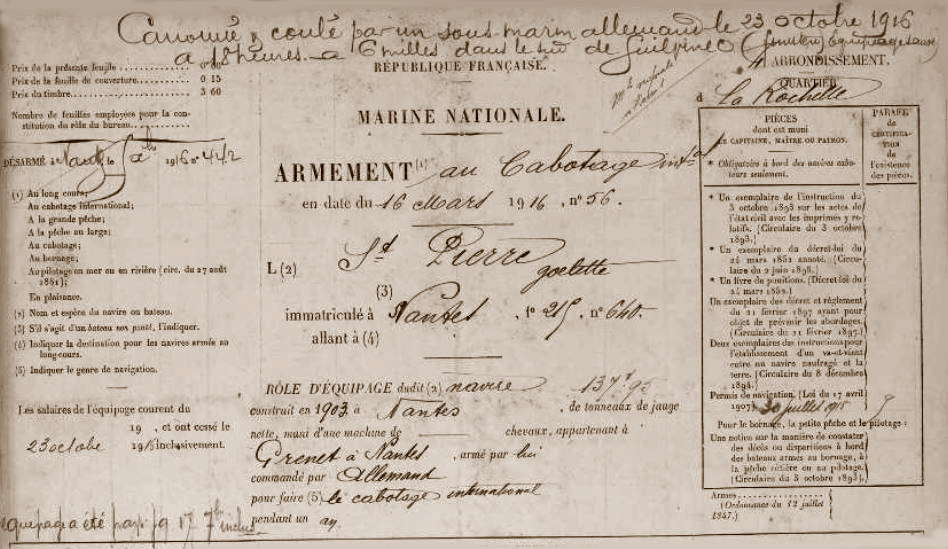 Canonné & coulé par un sous-marin allemand le 23 octobre 1916
à 18 heures à 6 milles dans le sud de Guilvinec (Finistère) Équipage sauvé
Prix de la présente feuille
Prix de la feuille de couverture 0 15
Prix du timbre 3 60
Nombre de feuilles employées pour la constitution
du rôle du bureau
DÉSARMÉ à Nantes le 1916 n° 442
(1) Au long cours;
Au cabotage international;
A la grande pêche;
A la pêche au large;
Au cabotage;
Au bornage;
Au pilotage en mer ou en rivière (circ. du 27 août
1851);
En plaisance.
(2) Nom et espèce du navire ou bateau.
(3) S'il s'agit d'un bateau non ponté, l'indiquer.
(4) Indiquer la destination pour les navires armés au
long-cours.
(5) Indiquer le genre de navigation.
Les salaires de l'équipage courent du
19 , et ont cessé le
23 octobe 1916 inclusivement.
équipage a été payé
RÉPUBLIQUE FRANÇAISE.
MARINE NATIONALE.
ARMEMENT (1) au Cabotage intal
en date du 16 Mars 1916 , n° 56.
L (2) St Pierre goelette
(3)
immatriculé à Nantes , f° 215 , n° 640
allant à (4)
RÔLE D'ÉQUIPAGE dudit (2) navire 137t 95
construit en 1903 à Nantes , de tonneaux de jauge
nette, muni d'une machine de chevaux, appartenant à
Grenet à Nantes , armé par lui
commandé par Allemand
pour faire (5) le cabotage international
pendant un an.
ARRONDISSEMENT.
QUARTIER
d La Rochelle
PIÈCES
dont est muni
LE CAPITAINE, MAÎTRE OU PATRON.
* Obligatoire à bord des navires caboteurs
seulement.
PARAFE
de
CERTIFICATION
de
l'existence
des pièces.
* Un exemplaire de l'instruction du
3 octobre 1893 sur les actes de
l'état civil avec les imprimés y relatifs.
(Circulaire du 3 octobre
1893.)
* Un exemplaire du décret-loi du
24 mars 1852 annoté. (Circulaire
du 2 juin 1898.)
* Un livre de punitions. (Décret-loi du
24 mars 1852.)
Un exemplaire des décret et règlement
du 21 février 1897 ayant pour
objet de prévenir les abordages.
(Circulaire du 21 février 1897.)
Deux exemplaires des instructions pour
l'établissement d'un va-et-vient
entre un navire naufragé et la
terre. (Circulaire du 8 décembre
1894.)
Permis de navigation. (Loi du 17 avril
1907) 30 juillet 1915
Pour le bornage, la petite pêche et le pilotage:
Une notice sur la manière de constater
des décès ou disparitions à bord
des bateaux armés au bornage, à
la pêche côtière ou au pilotage.
(Circulaire du 3 octobre 1893.)
Armes
(Ordonnance du 12 juillet
1847.)